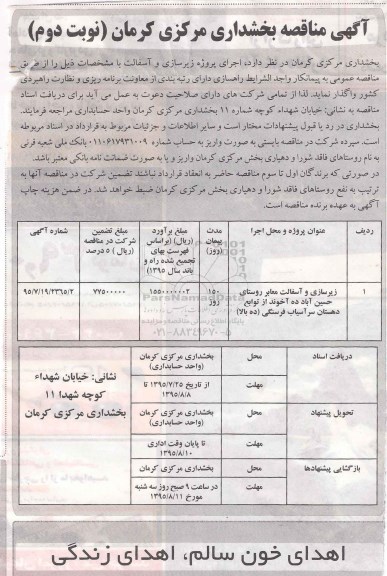 آگهی مناقصه بخشداری مرکزی کرمان (نوبت دوم)
بخشداری مرکزی کرمان در نظر دارد، اجرای پروژه زیرسازی و آسفالت با مشخصات ذیل را از طریق
مناقصه عمومی به پیمانکار واجد الشرایط راهسازی دارای رتبه بندی از معاونت برنامه ریزی و نظارت راهبردی
کشور واگذار نماید. لذا از تمامی شرکت های دارای صلاحیت دعوت به عمل می آید برای دریافت اسناد
به نشانی: خیابان شهداء کوچه شماره ۱۱ بخشداری مرکزی کرمان واحد حسابداری مراجعه فرمایند.
بخشداری در رد یا قبول پیشنهادات مختار است و سایر اطلاعات و جزئیات مربوط به قرارداد در اسناد مربوطه
است. سپرده شرکت در مناقصه بایستی به صورت واریز به حساب شماره ۰۱۱۰۶۱۷۹۳۱۰۰۹ بانک ملی شعبه قرنی
به نام روستاهای فاقد شورا و دهیاری بخش مرکزی کرمان واریز و یا به صورت ضمانت نامه بانکی معتبر باشد.
در صورتی که برندگان اول تا سوم مناقصه حاضر به انعقاد قرارداد نباشند تضمین شرکت در مناقصه آنها به
ترتیب به نفع روستاهای فاقد شورا و دهیاری بخش مرکزی کرمان ضبط خواهد شد. در ضمن هزینه چاپ
آگهی به عهده برنده مناقصه است.
ردیف
عنوان پروژه و محل اجرا
مدت پیمان (روز)
مبلغ برآورد (ریال) (براساس فهرست بهای تجمیع شده راه و باند سال ۱۳۹۵)
مبلغ تضمین شرکت در مناقصه (ریال) ۵ درصد
شماره آگهی
۱
زیرسازی و آسفالت معابر روستای حسین آباد ده آخوند از توابع دهستان سرآسیاب فرسنگی (ده بالا)
۱۵۰ روز
۱۵۵۰۰۰۰۰۰۲
۷۷۵۰۰۰۰۰
۹۵/۷/۱۹/۲۳۹۵/۲
ParsNamadData
۰۲۱-۸۸۳۴۹۶۷۰-۵
دریافت اسناد
محل
بخشداری مرکزی کرمان (واحد حسابداری)
مهلت
از تاریخ ۱۳۹۵/۷/۲۵ تا ۱۳۹۵/۸/۸
تحویل پیشنهاد
محل
بخشداری مرکزی کرمان (واحد حسابداری)
مهلت
تا پایان وقت اداری ۱۳۹۵/۸/۱۰
بازگشایی پیشنهادها
محل
بخشداری مرکزی کرمان
مهلت
در ساعت ۹ صبح روز سه شنبه مورخ ۱۳۹۵/۸/۱۱
نشانی: خیابان شهداء
کوچه شهدا ۱۱
بخشداری مرکزی کرمان
اهدای خون سالم، اهدای زندگی